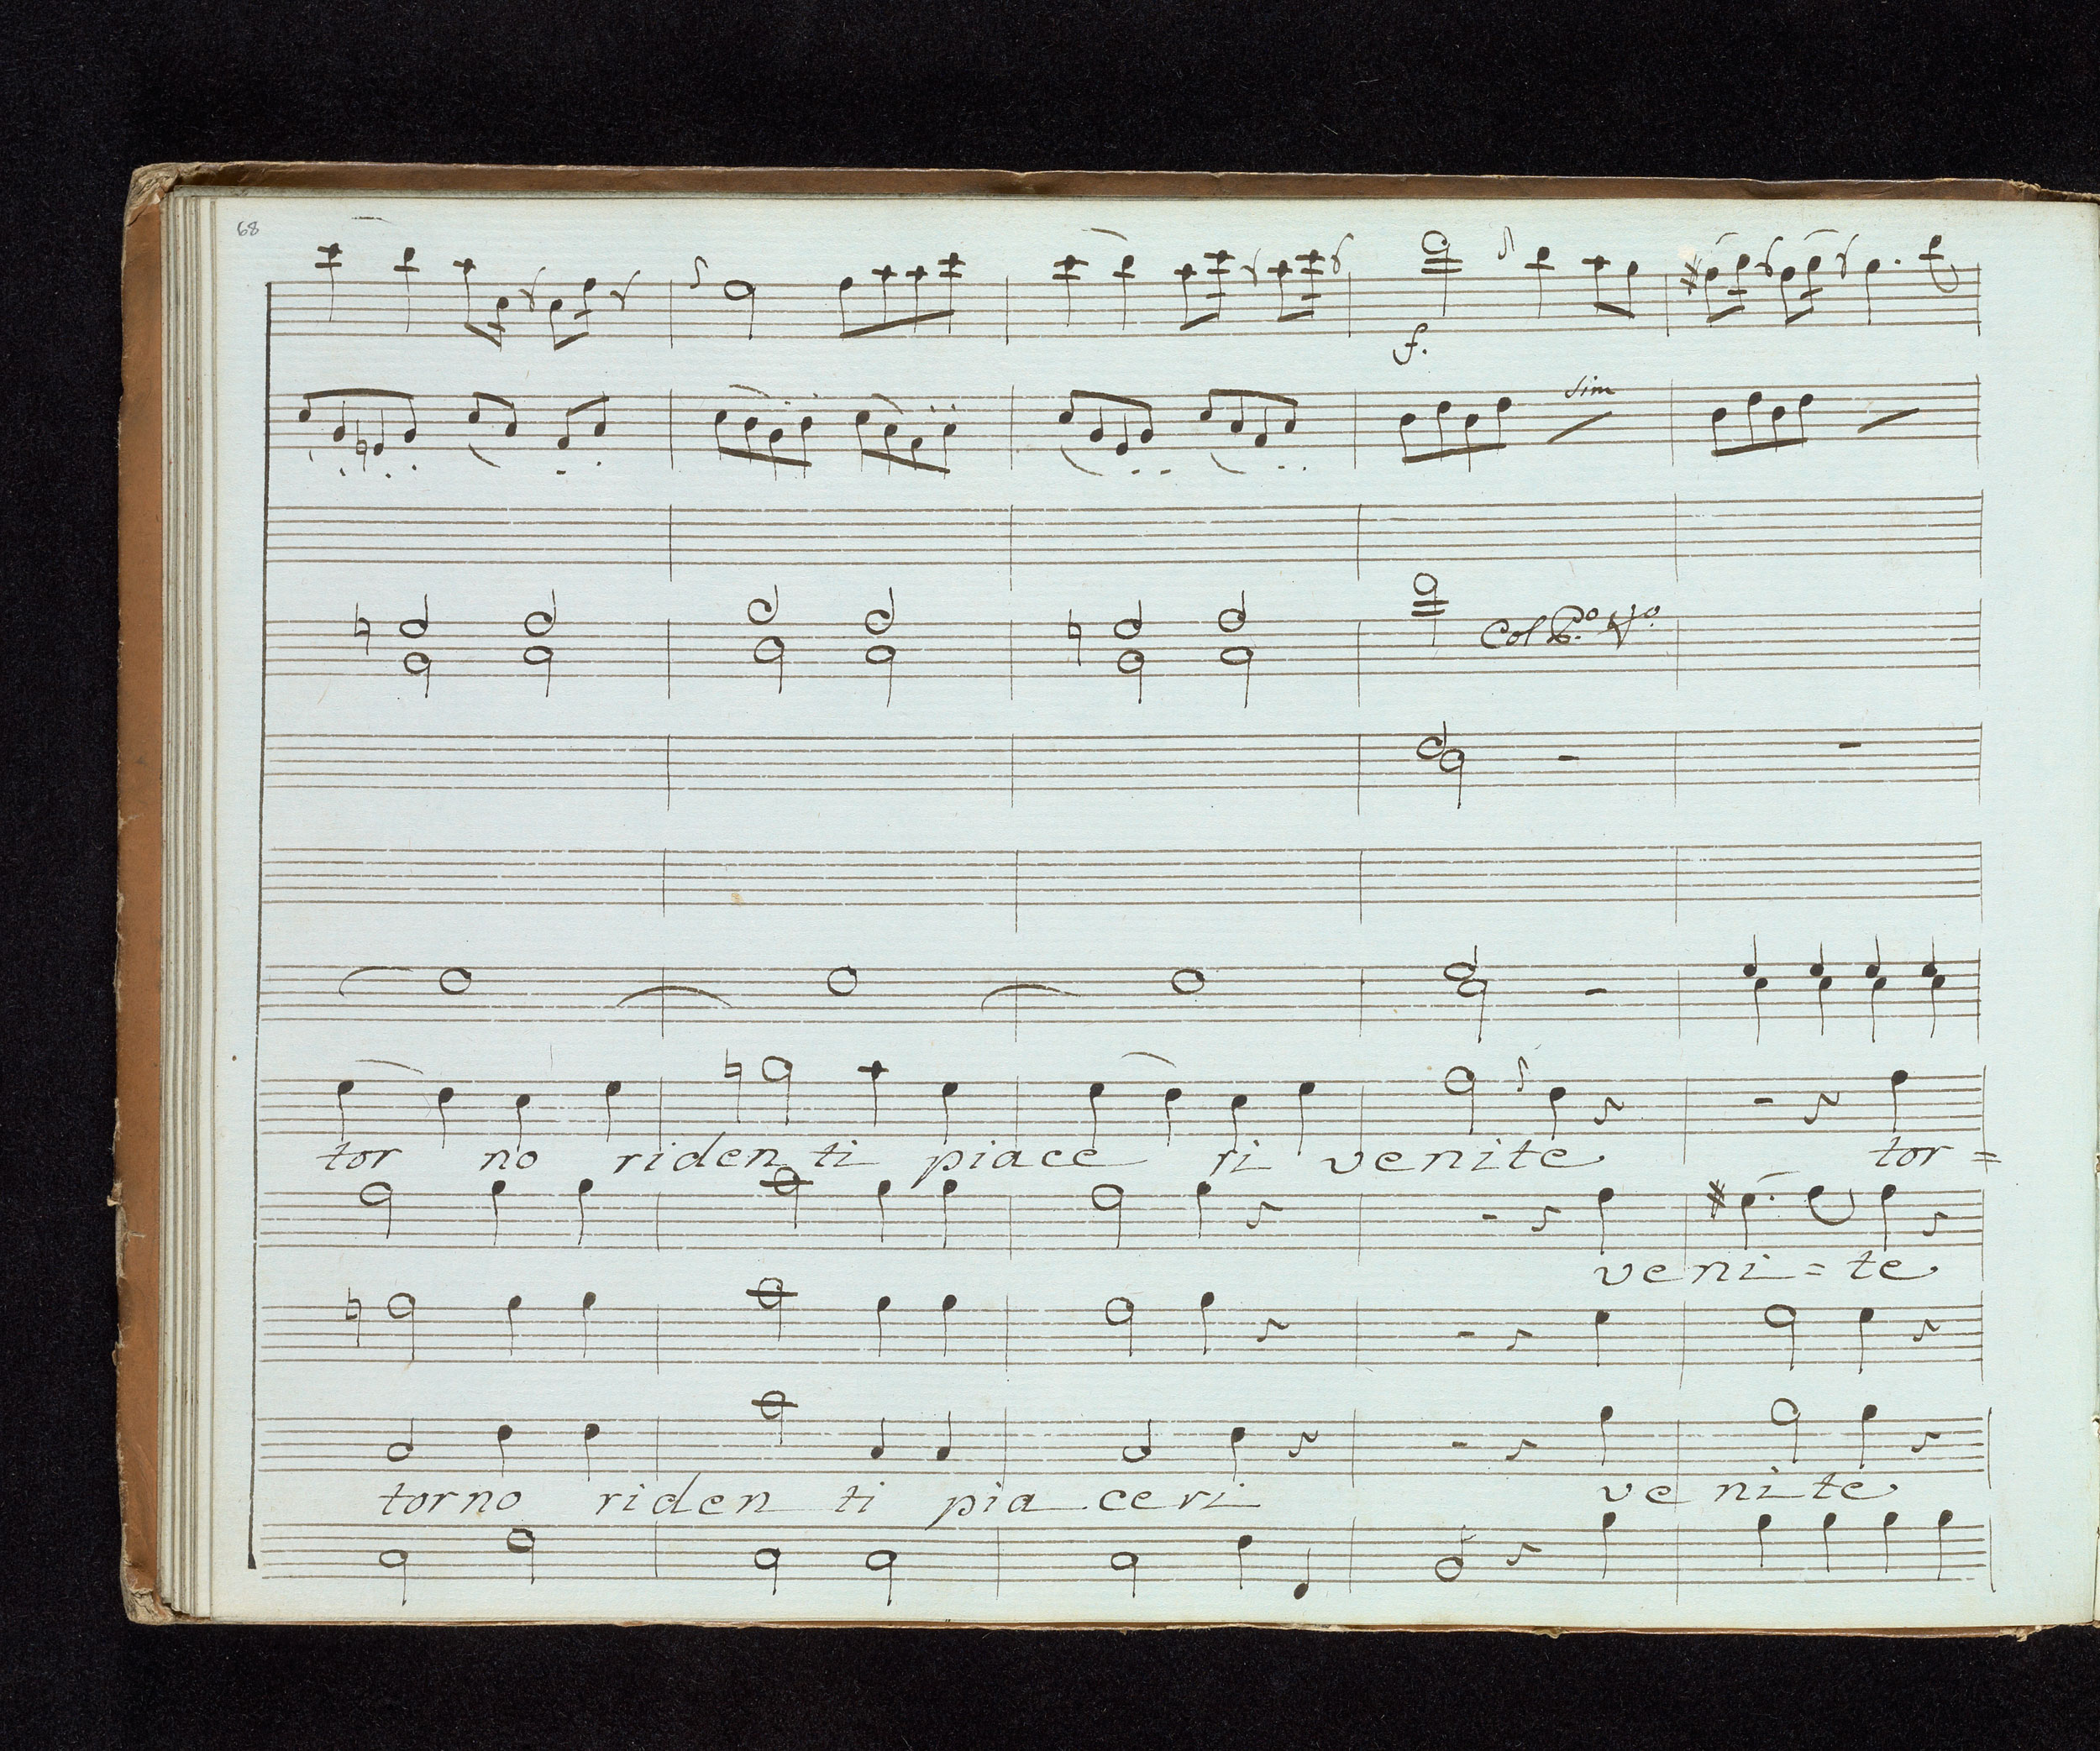 68
f.
sim
Col P.º V.º
tor no riden ti piace ri venite tor =
veni = te
torno riden ti pia ceri venite